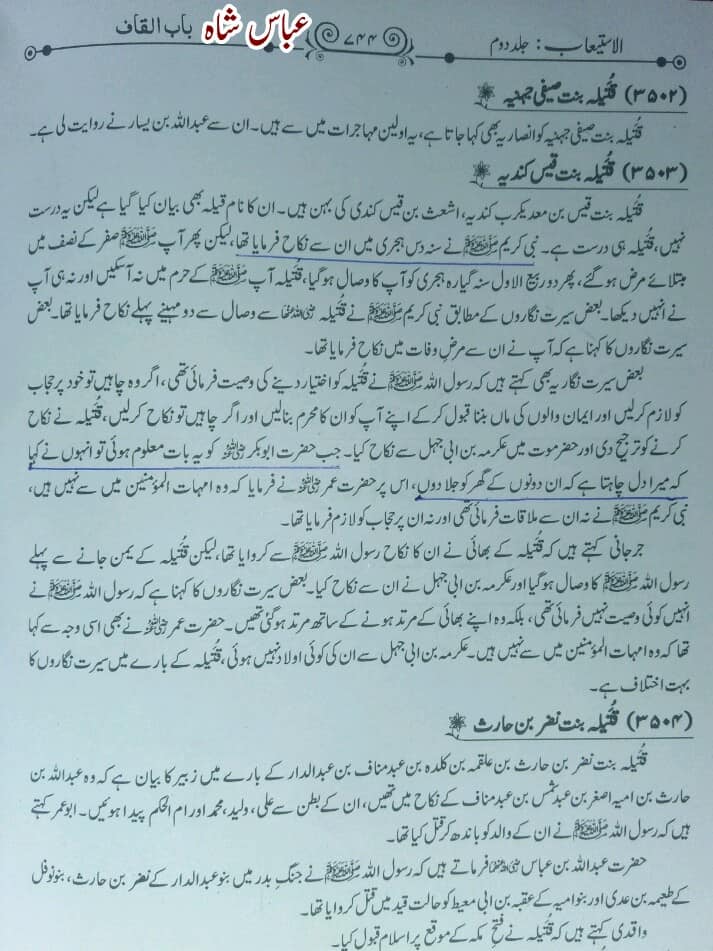 الاستیعاب : جلد دوم
۷۴۴
عباس شاہ
باب القاف
(۳۵۰۲) قُتَیلہ بنت صیفی جہنیہ
قُتَیلہ بنت صیفی جہنیہ کو انصاریہ بھی کہا جاتا ہے، یہ اولین مہاجرات میں سے ہیں۔ ان سے عبداللہ بن یسار نے روایت لی ہے۔
(۳۵۰۳) قُتَیلہ بنت قیس کندیہ
قُتَیلہ بنت قیس بن معدیکرب کندیہ، اشعث بن قیس کندی کی بہن ہیں۔ ان کا نام قیلہ بھی بیان کیا گیا ہے لیکن یہ درست
نہیں، قُتَیلہ ہی درست ہے۔ نبی کریم ﷺ نے سنہ دس ہجری میں ان سے نکاح فرمایا تھا، لیکن پھر آپ ﷺ صفر کے نصف میں
مبتلائے مرض ہو گئے، پھر دو ربیع الاول سنہ گیارہ ہجری کو آپ کا وصال ہو گیا، قُتَیلہ آپ ﷺ کے حرم میں نہ آسکیں اور نہ ہی آپ
نے انہیں دیکھا۔ بعض سیرت نگاروں کے مطابق نبی کریم ﷺ نے قُتَیلہ رضی اللہ عنہا سے وصال سے دو مہینے پہلے نکاح فرمایا تھا۔ بعض
سیرت نگاروں کا کہنا ہے کہ آپ نے ان سے مرضِ وفات میں نکاح فرمایا تھا۔
بعض سیرت نگار یہ بھی کہتے ہیں کہ رسول اللہ ﷺ نے قُتَیلہ کو اختیار دینے کی وصیت فرمائی تھی، اگر وہ چاہیں تو خود پر حجاب
کو لازم کر لیں اور ایمان والوں کی ماں بننا قبول کر کے اپنے آپ کو ان کا محرم بنا لیں اور اگر چاہیں تو نکاح کر لیں، قُتَیلہ نے نکاح
کرنے کو ترجیح دی اور حضر موت میں عکرمہ بن ابی جہل سے نکاح کیا۔ جب حضرت ابوبکر رضی اللہ عنہ کو یہ بات معلوم ہوئی تو انہوں نے کہا
کہ میرا دل چاہتا ہے کہ ان دونوں کے گھر کو جلا دوں، اس پر حضرت عمر رضی اللہ عنہ نے فرمایا کہ وہ امہات المؤمنین میں سے نہیں ہیں،
نبی کریم ﷺ نے نہ ان سے ملاقات فرمائی تھی اور نہ ان پر حجاب کو لازم فرمایا تھا۔
جرجانی کہتے ہیں کہ قُتَیلہ کے بھائی نے ان کا نکاح رسول اللہ ﷺ سے کروایا تھا، لیکن قُتَیلہ کے یمن جانے سے پہلے
رسول اللہ ﷺ کا وصال ہو گیا اور عکرمہ بن ابی جہل نے ان سے نکاح کیا۔ بعض سیرت نگاروں کا کہنا ہے کہ رسول اللہ ﷺ نے
انہیں کوئی وصیت نہیں فرمائی تھی، بلکہ وہ اپنے بھائی کے مرتد ہونے کے ساتھ مرتد ہو گئی تھیں۔ حضرت عمر رضی اللہ عنہ نے بھی اسی وجہ سے کہا
تھا کہ وہ امہات المؤمنین میں سے نہیں ہیں۔ عکرمہ بن ابی جہل سے ان کی کوئی اولاد نہیں ہوئی، قُتَیلہ کے بارے میں سیرت نگاروں کا
بہت اختلاف ہے۔
(۳۵۰۴) قُتَیلہ بنت نضر بن حارث
قُتَیلہ بنت نضر بن حارث بن علقمہ بن کلدہ بن عبد مناف بن عبد الدار کے بارے میں زبیر کا بیان ہے کہ وہ عبداللہ بن
حارث بن امیہ اصغر بن عبد شمس بن عبد مناف کے نکاح میں تھیں، ان کے بطن سے علی، ولید، محمد اور ام الحکم پیدا ہوئیں۔ ابوعمر کہتے
ہیں کہ رسول اللہ ﷺ نے ان کے والد کو باندھ کر قتل کیا تھا۔
حضرت عبداللہ بن عباس رضی اللہ عنہما فرماتے ہیں کہ رسول اللہ ﷺ نے جنگِ بدر میں بنو عبد الدار کے نضر بن حارث، بنو نوفل
کے طعیمہ بن عدی اور بنو امیہ کے عقبہ بن ابی معیط کو حالت قید میں قتل کروایا تھا۔
واقدی کہتے ہیں کہ قُتَیلہ نے فتحِ مکہ کے موقع پر اسلام قبول کیا۔